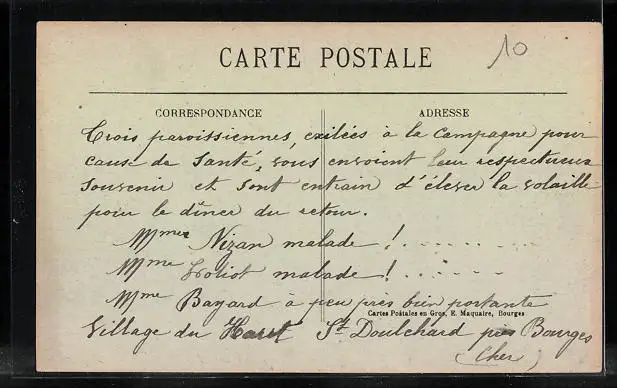 10
CARTE POSTALE
CORRESPONDANCE
ADRESSE
Trois paroissiennes, exilées à la campagne pour
cause de Santé, vous envoient leur respectueux
Souvenir et sont entrain d'élever la volaille
pour le dîner du retour.
Mmes Nizan malade ! . . . . . . .
Mme malade ! . . . . .
Mme Bayard à peu près bien portante
Cartes Postales en Gros, E. Maquaire, Bourges
Village du St Doulchard près Bourges
(Cher)